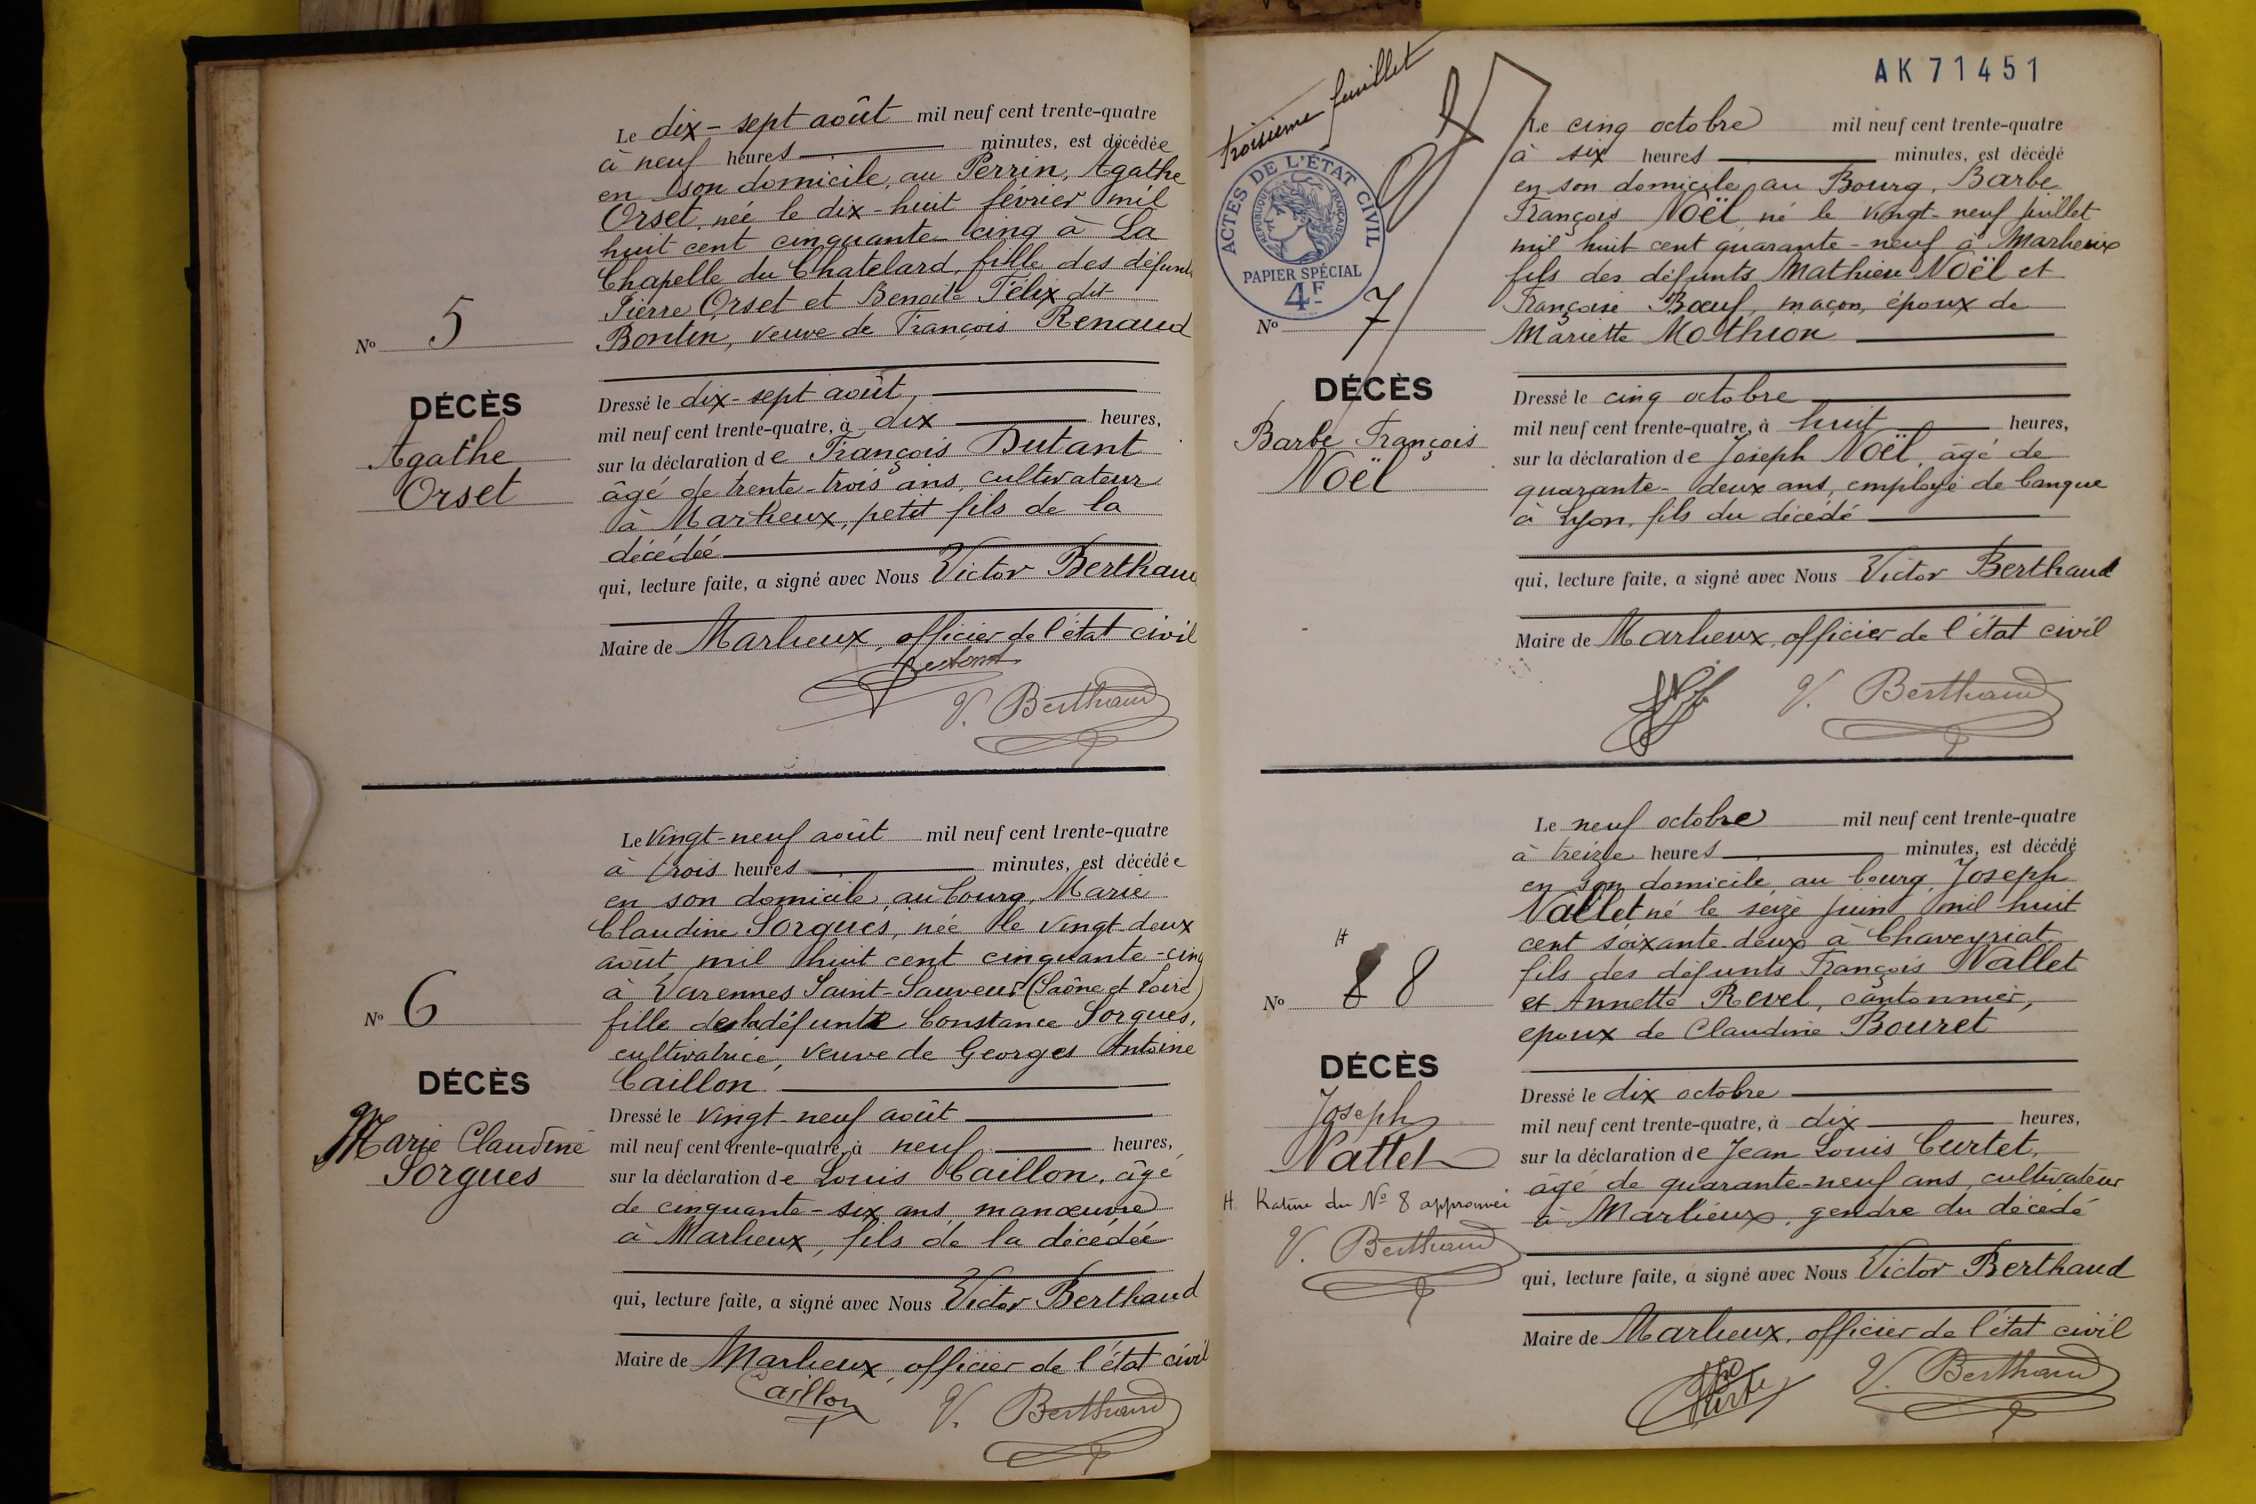 Le dix-sept août mil neuf cent trente-quatre
à neuf heures minutes, est décédée
en son domicile, au Perrin, Agathe
Orset, née le dix-huit février mil
huit cent cinquante-cinq à La
Chapelle du Chatelard, fille des défunts
Pierre Orset et Benoite Félix dit
Bontin, veuve de François Renaud
N° 5
DÉCÈS
Agathe
Orset
Dressé le dix-sept août,
mil neuf cent trente-quatre, à dix heures,
sur la déclaration de François Dutant
âgé de trente-trois ans, cultivateur
à Marlieux, petit fils de la
décédée
qui, lecture faite, a signé avec Nous Victor Berthaud
Maire de Marlieux, officier de l'état civil
V. Berthaud
Le vingt-neuf août mil neuf cent trente-quatre
à trois heures minutes, est décédée
en son domicile, au bourg, Marie
Claudine Sorgues, née le vingt-deux
août mil huit cent cinquante-cinq
à Varennes Saint-Sauveur (Saône et Loire)
fille de la défunte Constance Sorgues,
cultivatrice, veuve de Georges Antoine
Caillon
N° 6
DÉCÈS
Marie Claudine
Sorgues
Dressé le vingt-neuf août
mil neuf cent trente-quatre, à neuf heures,
sur la déclaration de Louis Caillon, âgé
de cinquante-six ans, manœuvre
à Marlieux, fils de la décédée
qui, lecture faite, a signé avec Nous Victor Berthaud
Maire de Marlieux, officier de l'état civil
Caillon V. Berthaud
AK 71451
troisième feuillet
ACTES DE L'ÉTAT CIVIL
RÉPUBLIQUE FRANÇAISE
PAPIER SPÉCIAL
4F
Le cinq octobre mil neuf cent trente-quatre
à six heures minutes, est décédé
en son domicile, au Bourg, Barbe
François Noël, né le vingt-neuf juillet
mil huit cent quarante-neuf à Marlieux
fils des défunts Mathieu Noël et
Françoise Bœuf, maçon, époux de
Mariette Mothion
N° 7
DÉCÈS
Barbe François
Noël
Dressé le cinq octobre
mil neuf cent trente-quatre, à huit heures,
sur la déclaration de Joseph Noël, âgé de
quarante-deux ans, employé de banque
à Lyon, fils du décédé
qui, lecture faite, a signé avec Nous Victor Berthaud
Maire de Marlieux, officier de l'état civil
V. Berthaud
Le neuf octobre mil neuf cent trente-quatre
à treize heures minutes, est décédé
en son domicile, au bourg, Joseph
Vallet né le seize juin mil huit
cent soixante-deux à Chaveyriat
fils des défunts François Vallet
et Annette Revel, cantonnier,
époux de Claudine Bouret
H
N° 8 8
DÉCÈS
Joseph
Vallet
H Rature du N° 8 approuvée
V. Berthaud
Dressé le dix octobre
mil neuf cent trente-quatre, à dix heures,
sur la déclaration de Jean Louis Curtet,
âgé de quarante-neuf ans, cultivateur
à Marlieux, gendre du décédé
qui, lecture faite, a signé avec Nous Victor Berthaud
Maire de Marlieux, officier de l'état civil
V. Berthaud